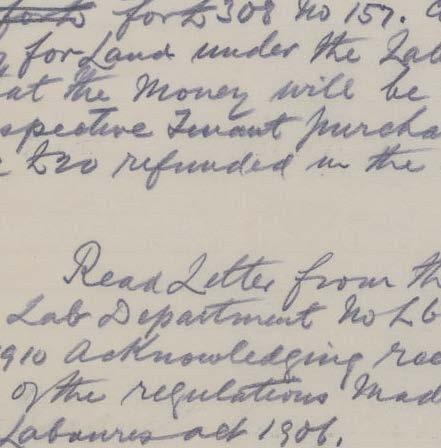 for £308 No 157.
for Land under the Lab
at the Money will be
spective Tenant purcha
£20 refunded in the
Read Letter from th
Lab Department No L6
1910 Acknowledging rec
of the regulations Mad
Laboures act 1906.